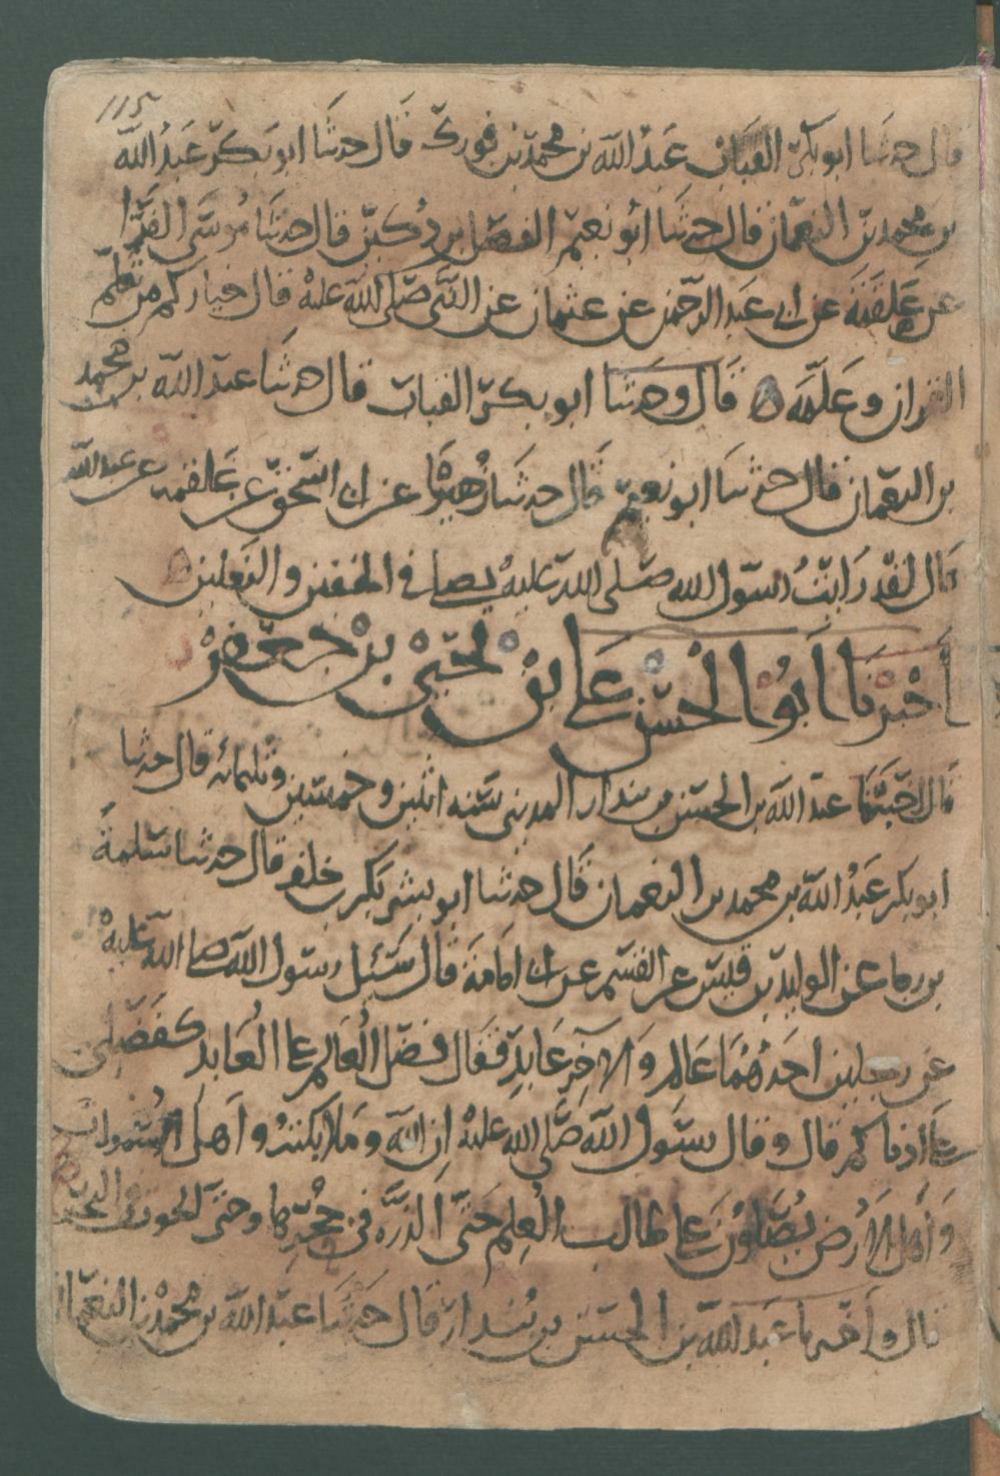 115
قال حدثنا ابو بكر القباب عبد الله بن محمد بن فورك قال حدثنا ابو بكر عبد الله
بن محمد بن النعمان قال حدثنا ابو نعيم الفضل بن دكين قال حدثنا موسى الفرا
عن علقمة عن ابي عبد الرحمن عن عثمان عن النبي صلى الله عليه قال خياركم من تعلم
القران وعلمه قال وحدثنا ابو بكر القباب قال حدثنا عبد الله بن محمد
بن النعمان قال حدثنا ابو نعيم قال حدثنا زهير عن ابي اسحق عن علقمه عن عبد الله
قال لقد رايت رسول الله صلى الله عليه يصلي في الخفين والنعلين
اخبرنا ابو الحسن علي بن يحيى بن جعفر
قال عبد الله بن الحسن بن بندار المديني سنه اثنين وخمسين وثلثمائه قال حدثنا
ابو بكر عبد الله بن محمد بن النعمان قال حدثنا ابو بشر بكر بن خلف قال حدثنا سلمة
بن رجا عن الوليد بن قيس عن القسم عن ابي امامة قال سئل رسول الله صلى الله عليه
عن رجلين احدهما عالم والاخر عابد فقال فضل العالم على العابد كفضلي
على ادناكم قال وقال رسول الله صلى الله عليه ان الله وملايكته واهل السموات
واهل الارض يصلون على طالب العلم حتى الذرة في جحرها وحتى الحوت في البحر
قال واخبرنا عبد الله بن الحسن بن بندار قال حدثنا عبد الله بن محمد بن النعمان